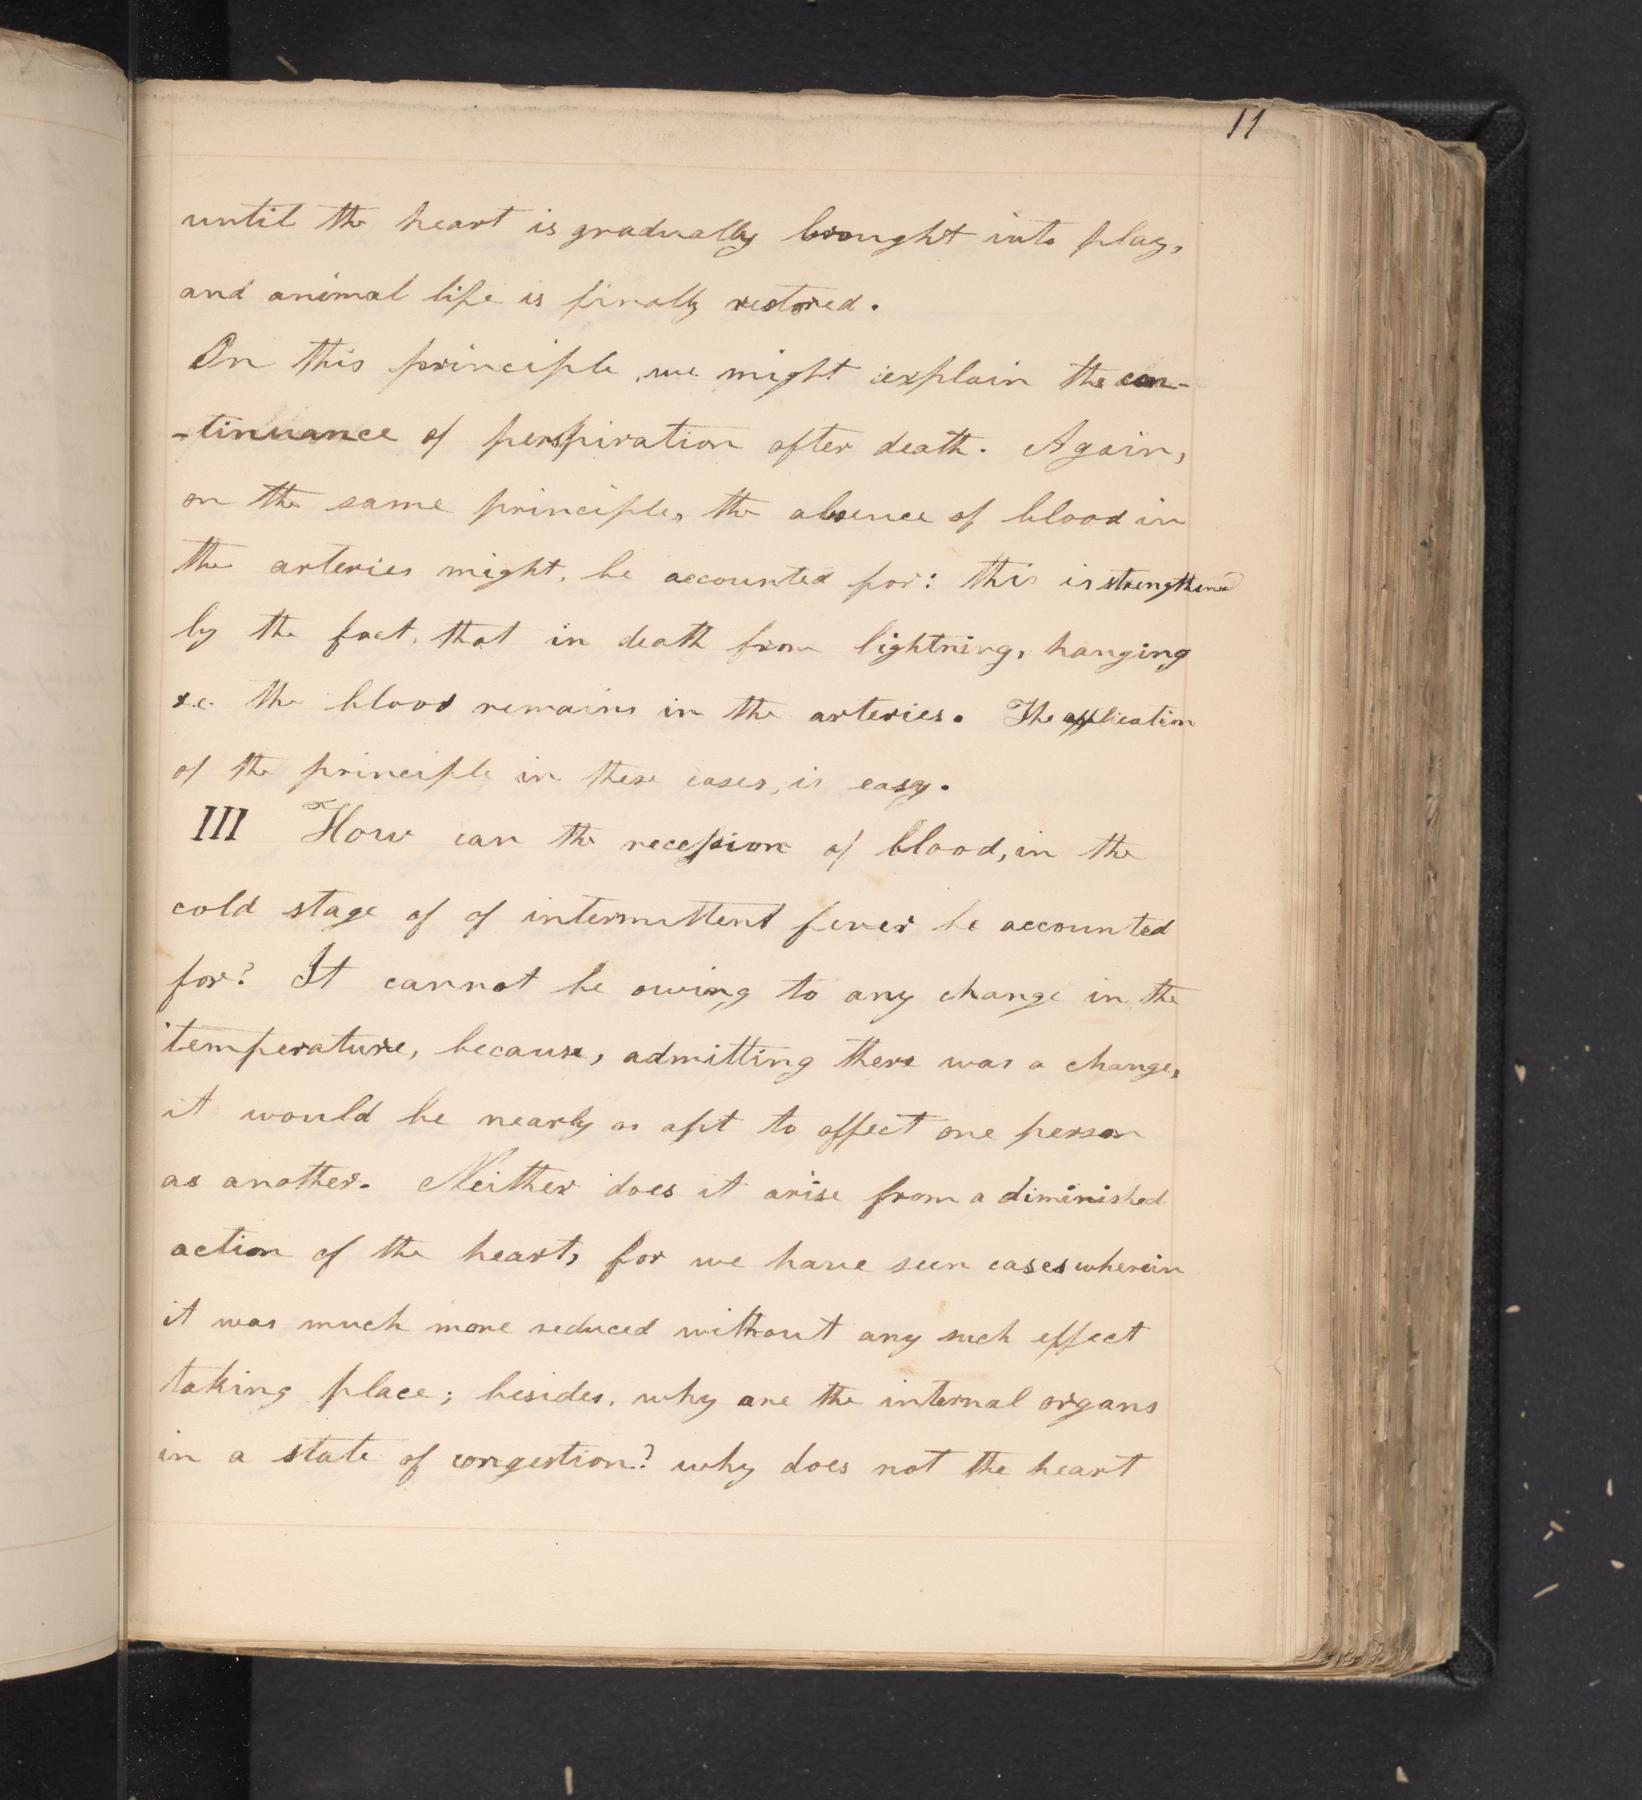 11
until the heart is gradually brought into play,
and animal life is finally restored.
On this principle, we might explain the con-
-tinuance of perspiration after death. Again,
on the same principle, the absence of blood in
the arteries might, be accounted for: this is strengthened
by the fact, that in death from lightning, hanging
&c. the blood remains in the arteries. The application
of the principle in these cases, is easy.
III How can the recession of blood, in the
cold stage of of intermittent fever be accounted
for? It cannot be owing to any change in the
temperature, because, admitting there was a change,
it would be nearly as apt to affect one person
as another. Neither does it arise from a diminished
action of the heart, for we have seen cases wherein
it was much more reduced without any such effect
taking place; besides, why are the internal organs
in a state of congestion? why does not the heart